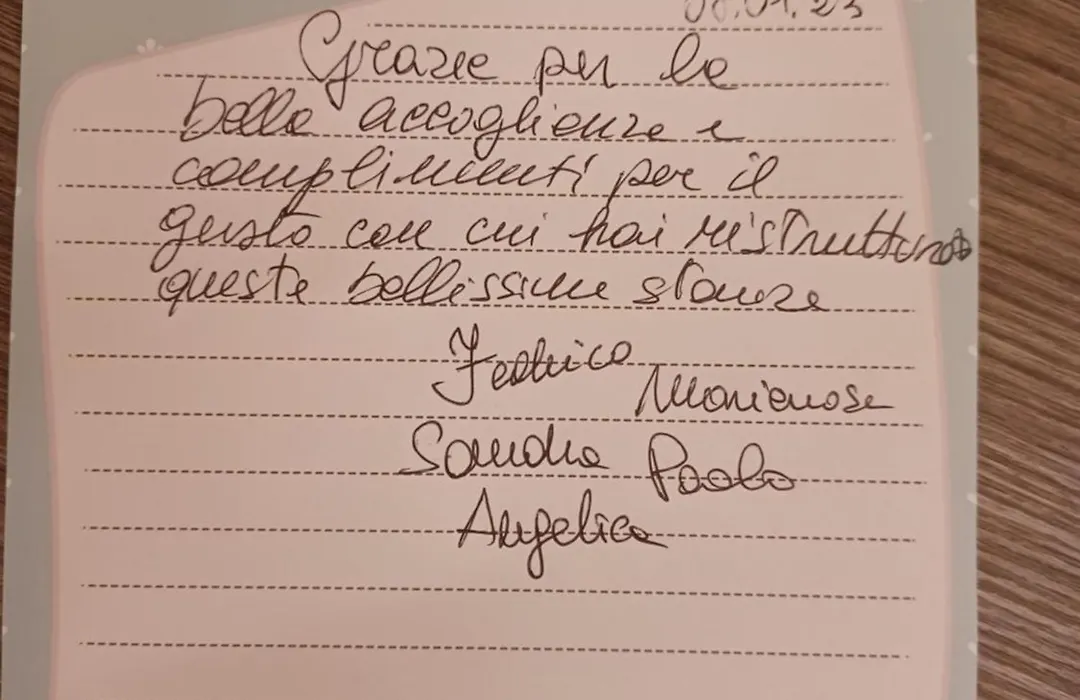 08.01.23
Grazie per la
bella accoglienza e
complimenti per il
gusto con cui hai ristrutturato
queste bellissime stanze
Federica
Marianose
Sandra Paolo
Angelica